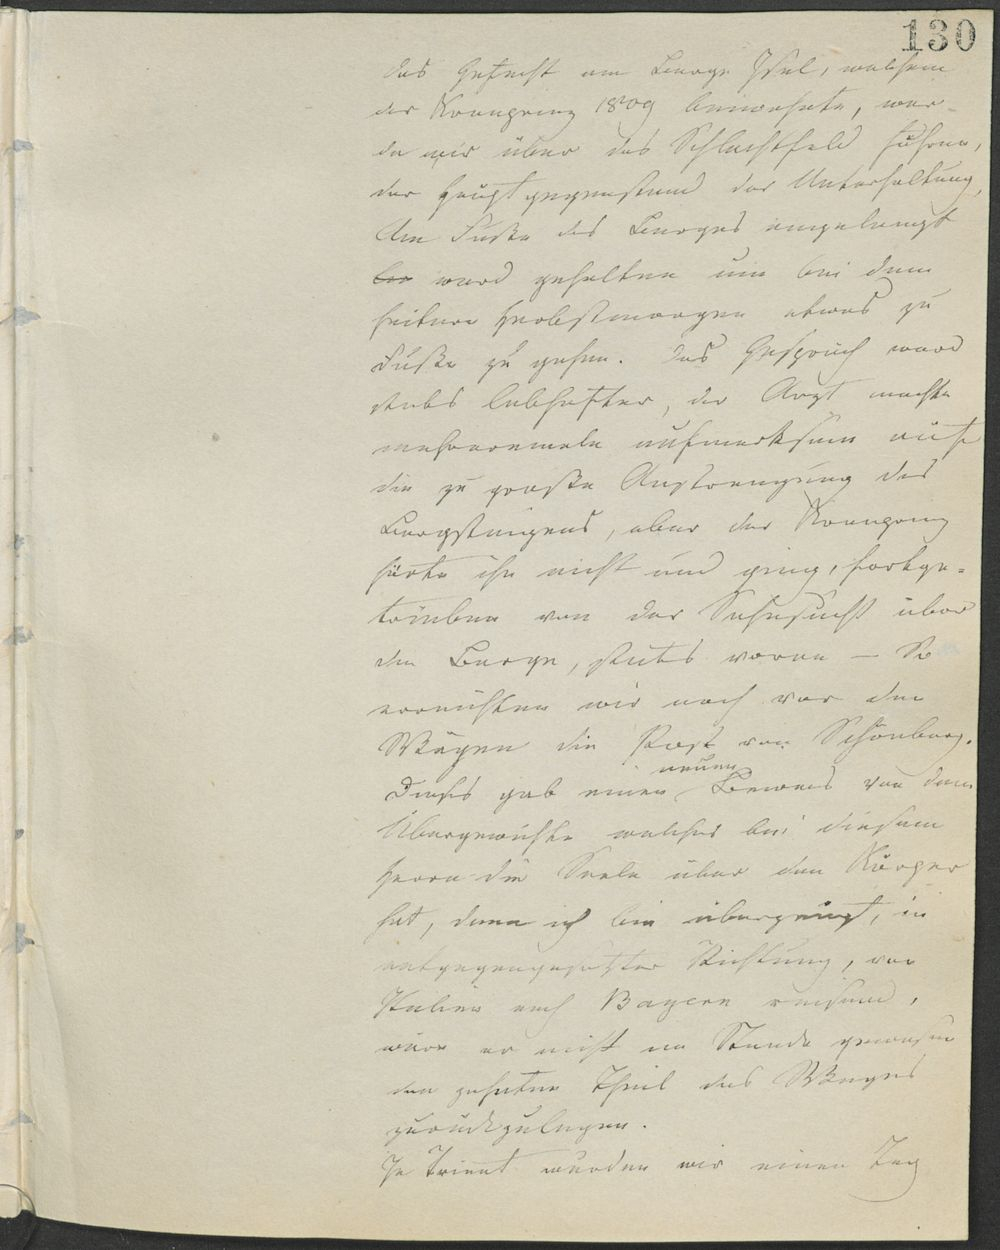 130
das Gefecht am Berge Isel, welchem
der Kronprinz 1809 beiwohnte, war
da wir über das Schlachtfeld fuhren,
der Hauptgegenstand der Unterhaltung.
Am Fuße des Berges angelangt
ward gehalten um bei dem
heitern Herbstmorgen etwas zu
Fuße zu gehen. Das Gespräch ward
stets lebhafter, der Arzt machte
mehreremale aufmerksam auf
die zu große Anstrengung des
Bergsteigens, aber der Kronprinz
hörte ihn nicht und ging, fortge-
trieben von der Sehnsucht über
die Berge, stets voran — So
erreichten wir noch vor den
Wägen die Post von Schönberg.
neuen
Dieses gab einen Beweis von dem
Übergewichte welches bei diesem
Herrn die Seele über den Körper
hat, denn ich bin überzeugt, in
entgegengesetzter Richtung, von
Italien nach Bayern reisend,
wäre er nicht im Stande gewesen
den zehnten Theil des Weges
zurückzulegen.
In Trient wurden wir einen Tag